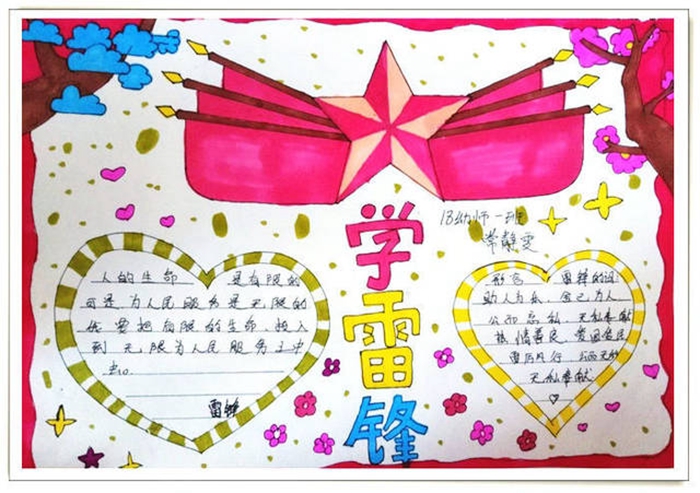 18幼师一班
常静雯
学雷锋
人的生命 是有限的
可是为人民服务是无限的
我要把有限的生命,投入
到无限为人民服务之中
去。
雷锋
形容 雷锋的词
助人为乐,舍己为人
公而忘私,无私奉献
热情善良,爱国爱民
雷厉风行
无私奉献